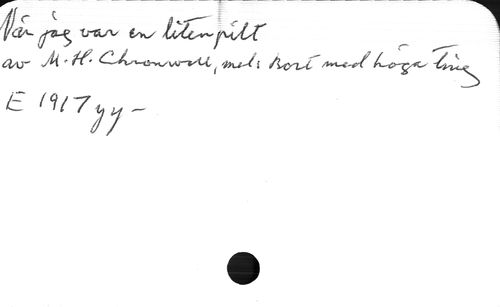 När jag var en liten pilt
av M. H. Chronwall, mel: Bort med höga Ting
E 1917 yy -